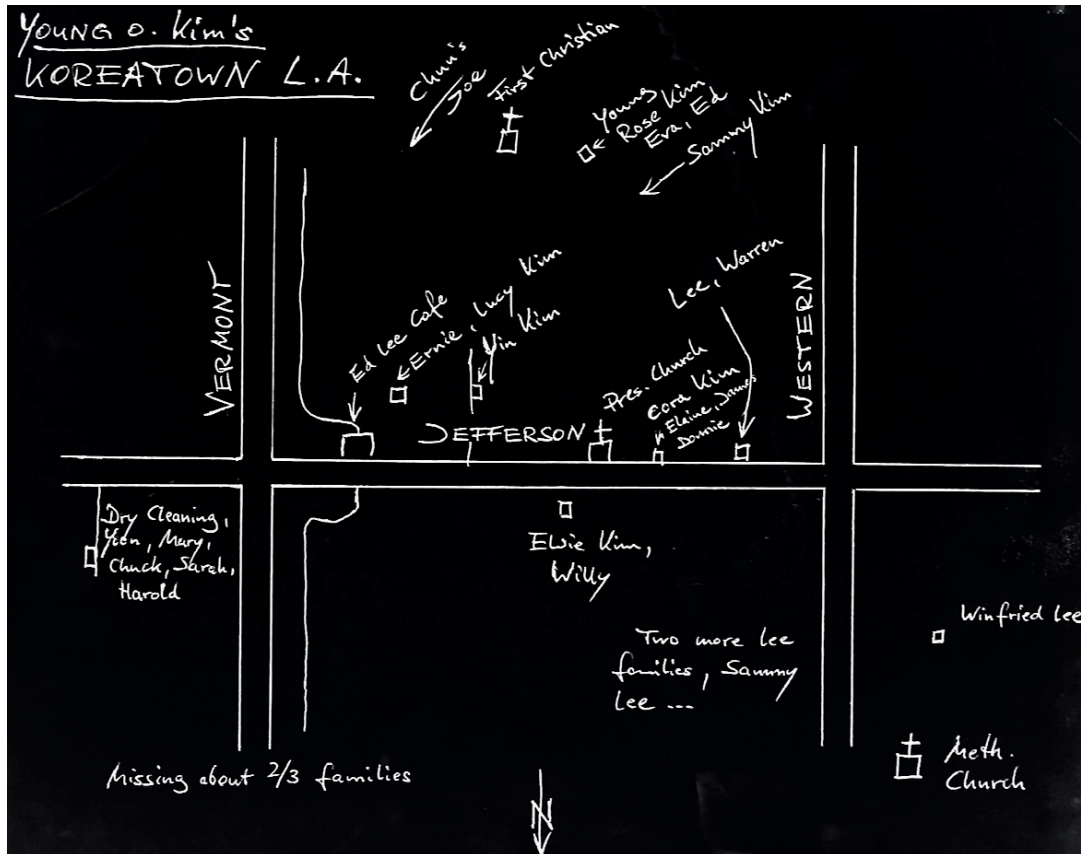 YOUNG O. Kim's
KOREATOWN L.A.
Chun's
Joe
First Christian
Young
Rose Kim
Eva, Ed
Sammy Kim
VERMONT
Ed Lee Cafe
Ernie, Lucy Kim
Yin Kim
Lee, Warren
WESTERN
Pres. Church
Cora Kim
Elaine, James
Donnie
JEFFERSON
Dry Cleaning,
Yien, Mary,
Chuck, Sarah,
Harold
Elsie Kim,
Willy
Winfried Lee
Two more Lee
families, Sammy
Lee ...
Meth.
Church
Missing about 2/3 families
N